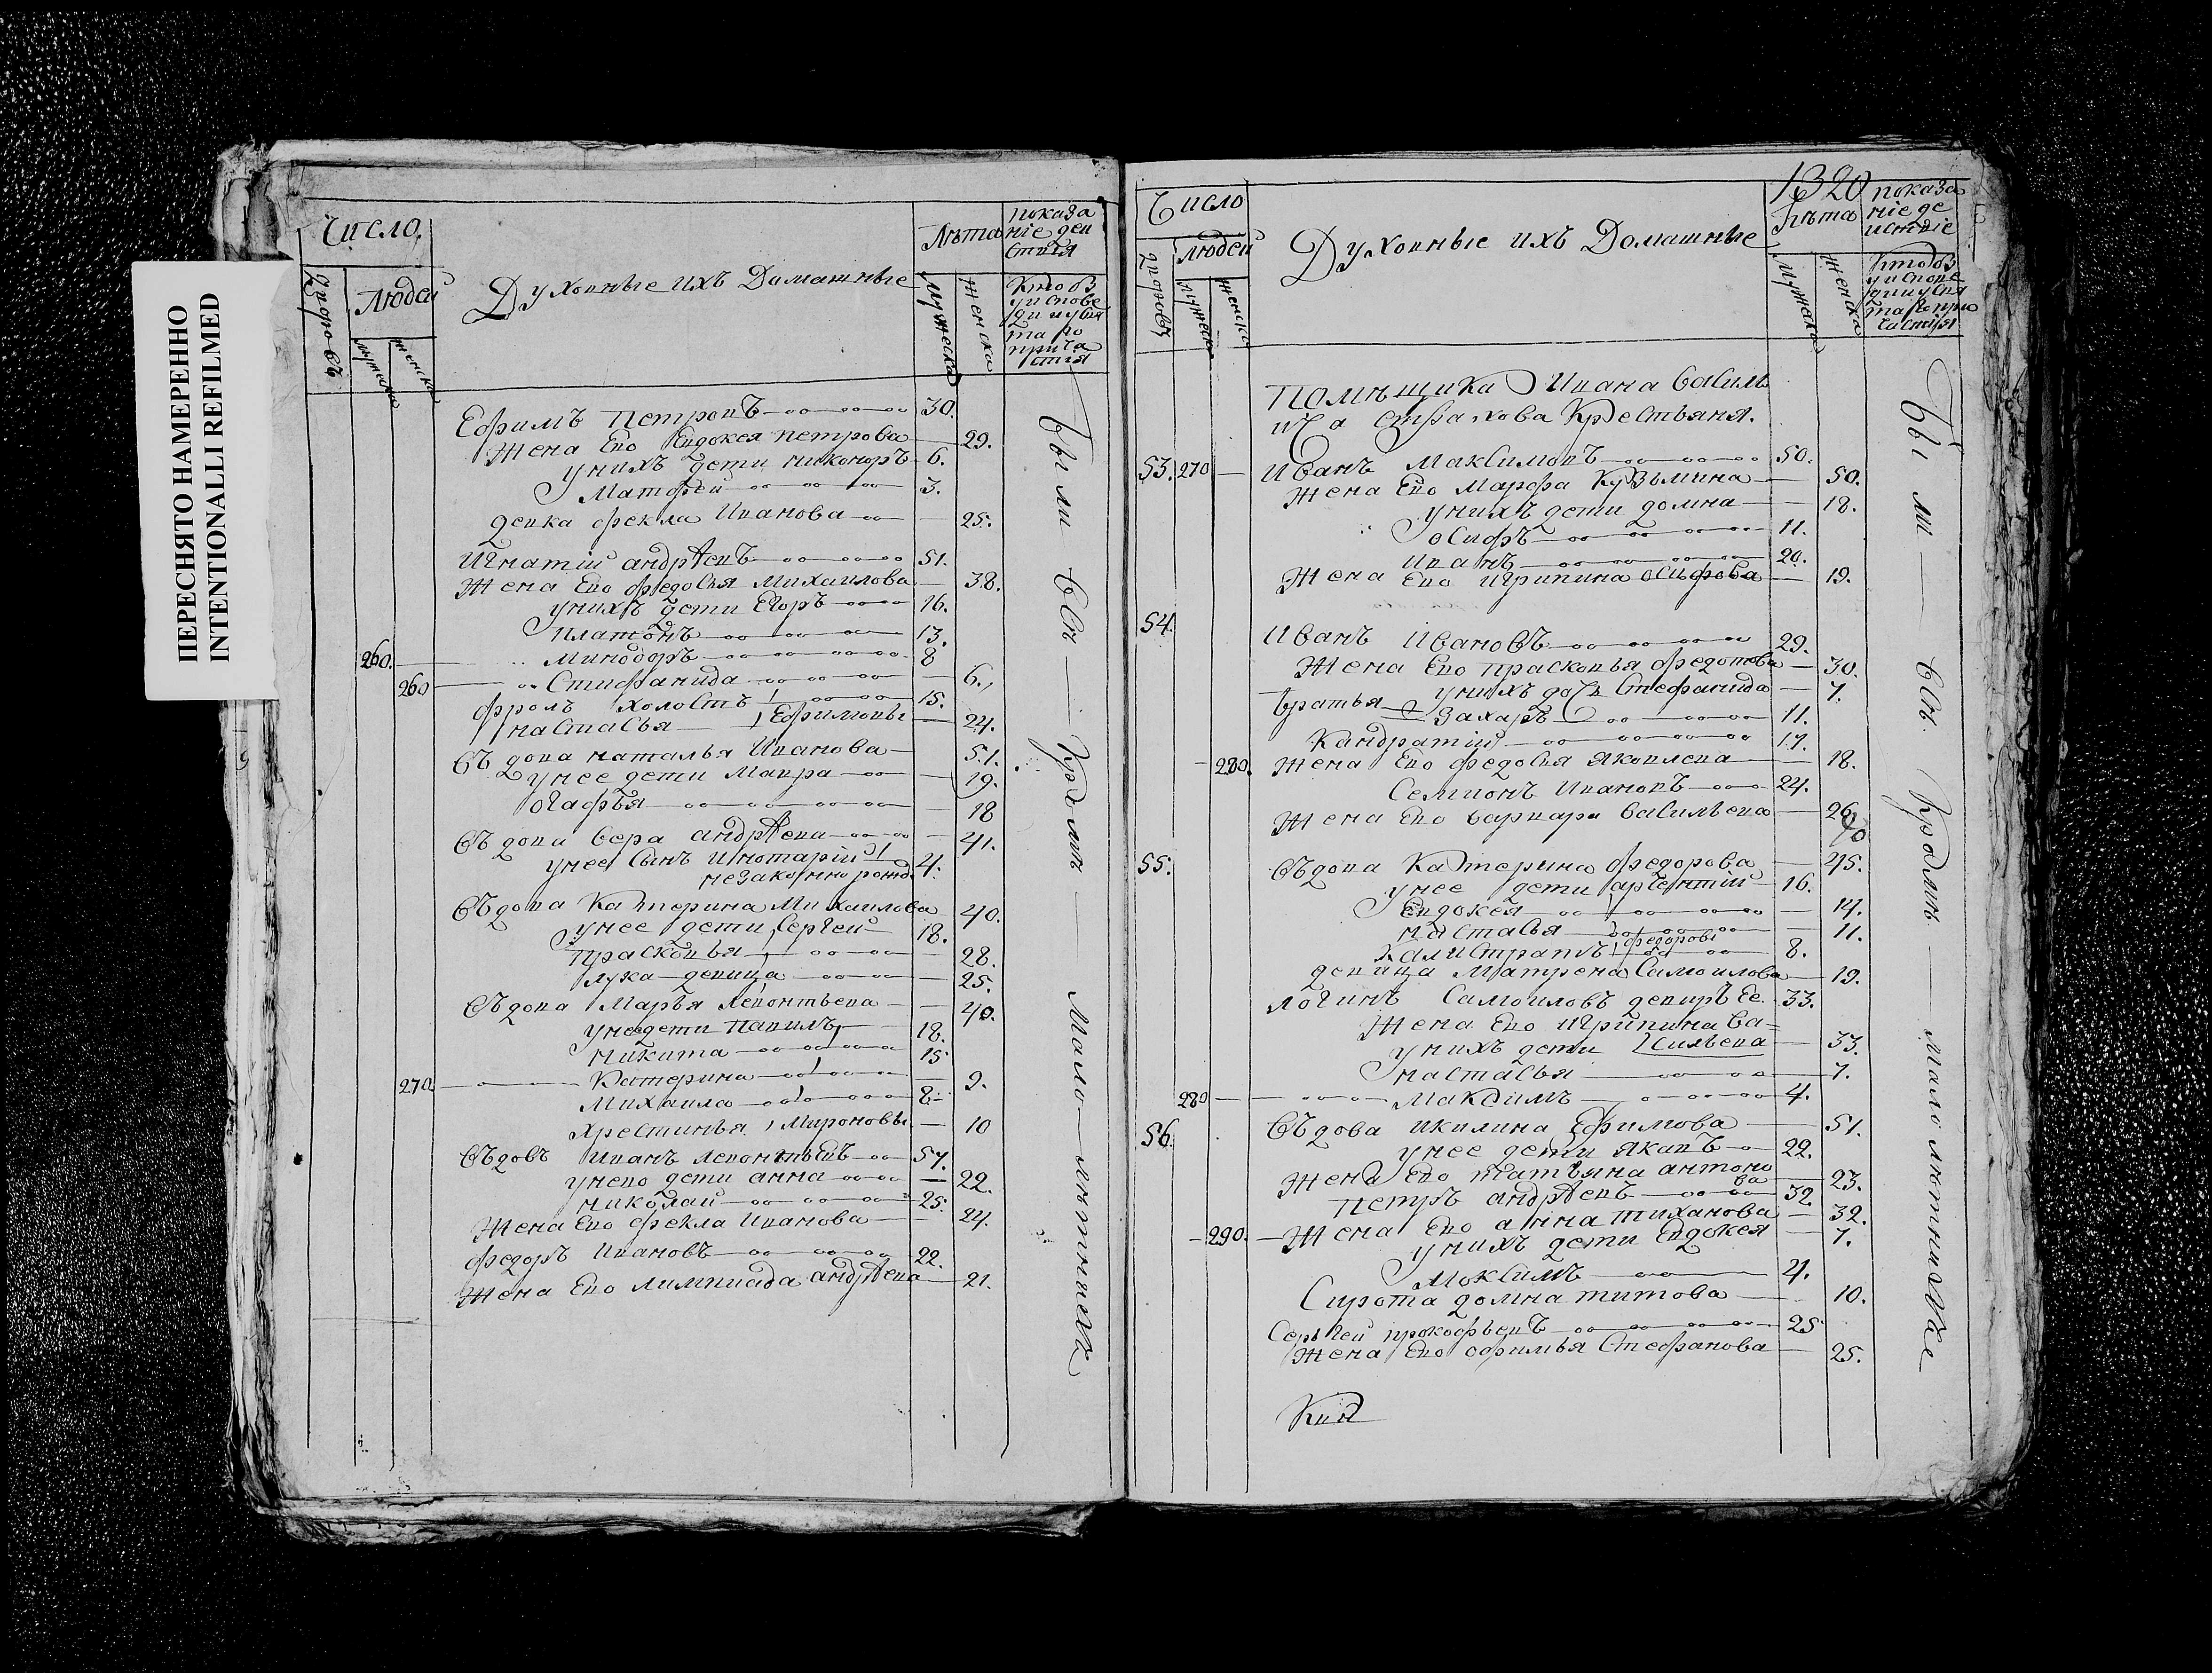 ПЕРЕСНЯТО НАМЕРЕННО
INTENTIONALLI REFILMED
Число
дворовъ
Людей
мужеска
женска
Духовные ихъ Домашные
Лѣта
мужеска
женска
показа
ние деи
ствия
Кто в
у испове
ди и у свя
та го
прича
стия
Ефримъ Петровъ 30.
Жена Ево Евдокея петрова 29.
у нихъ дети никоноръ 6.
Матфей 3.
девка фекла Иванова 25.
Игнатiй андрѣевъ 51.
Жена Ево федосья Михаилова 38.
у нихъ дети Егоръ 16.
платонъ 13.
260. минодоръ 8
260 Стифанида 6.
фролъ холостъ 15.
настасья Ефримовы 24.
Въдова наталья Иванова 51.
у нее дети Мавра 19.
огафья 18
Въдова вера андрѣева 41.
у нее Сынъ Инотарiй 4.
незаконно рожд
Въдова Катерина Михаилова 40.
у нее дети Сергей 18.
прасковья 28.
лука девица 25.
Въдова Марья левонтьева 40.
у нее дети павилъ 18.
никита 15
270 Катерина 9.
Михаила 8
Хрестинья Мироновы 10
Въдовъ Иванъ левонтьевъ 57.
у нево дети анна 22.
николаи 25.
Жена Ево фекла Иванова 24.
федоръ Ивановъ 22.
Жена Ево лимпиада андрѣева 21.
были всѣ Кромѣ мало лѣтнихъ
1320
Число
дворовъ
людей
мужеска
женска
Духовные ихъ Домашные
Лѣта
мужеска
женска
показа
нiе де
иствiе
Кто в
у испове
ди и у свя
та го при
чистия
помѣщика Ивана василь
ича страхова Крестьяня.
53. 270 Иванъ Максимовъ 50.
Жена Ево Марфа Кузьмина 50.
у нихъ дети домна 18.
осифъ 11.
иванъ 20.
Жена Ево игрипина осифова 19.
54. Иванъ Ивановъ 29.
Жена Ево прасковья федотова 30.
у нихъ дочь Стефанида 7.
братья Захаръ 11.
Кандратiй 17.
280. Жена Ево федосья яковлева 18.
Семионъ Ивановъ 24.
Жена Ево варвара васильева 26
55. Въдова Катерина федорова 45.
у нее дети 16.
Евдокея 14.
настасья 11.
Калистратъ федоровы 8.
девица Матрена Самоилова 19.
логинъ Самоиловъ деверъ Ее 33.
Жена Ево игрипина ва=
сильева 33.
у нихъ дети
настасья 7.
280 Максимъ 4.
56. Въдова икилина Ефимова 51.
у нее дети якавъ 22.
Жена Ево татьяна антоно
ва 23.
петръ андрѣевъ 32
290. Жена Ево анна тиханова 32.
у нихъ дети Евдокея 7.
Моксимъ 4.
Сирота домна титова 10.
Сергей прокофьевъ 25
Жена Ево офимья Стефанова 25.
были всѣ Кромѣ мало лѣтнихъ